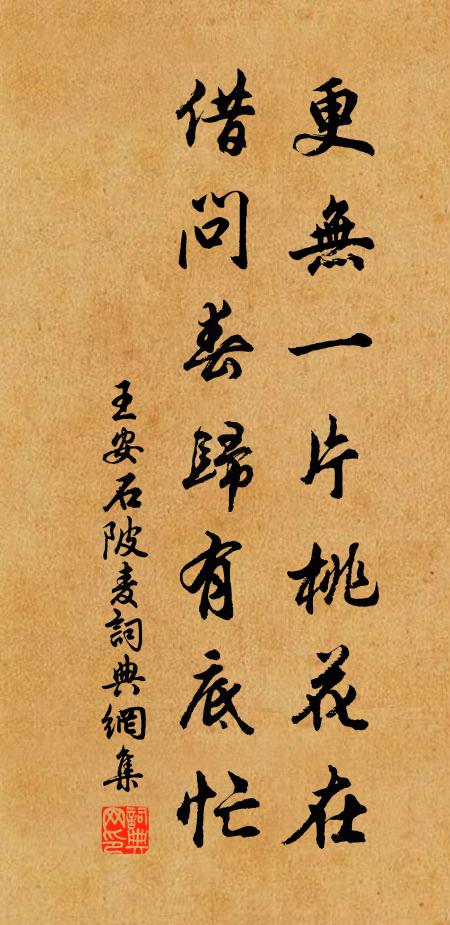 更無一片桃花在
借問春歸有底忙
王安石陂麦詞典網集
詞典網印